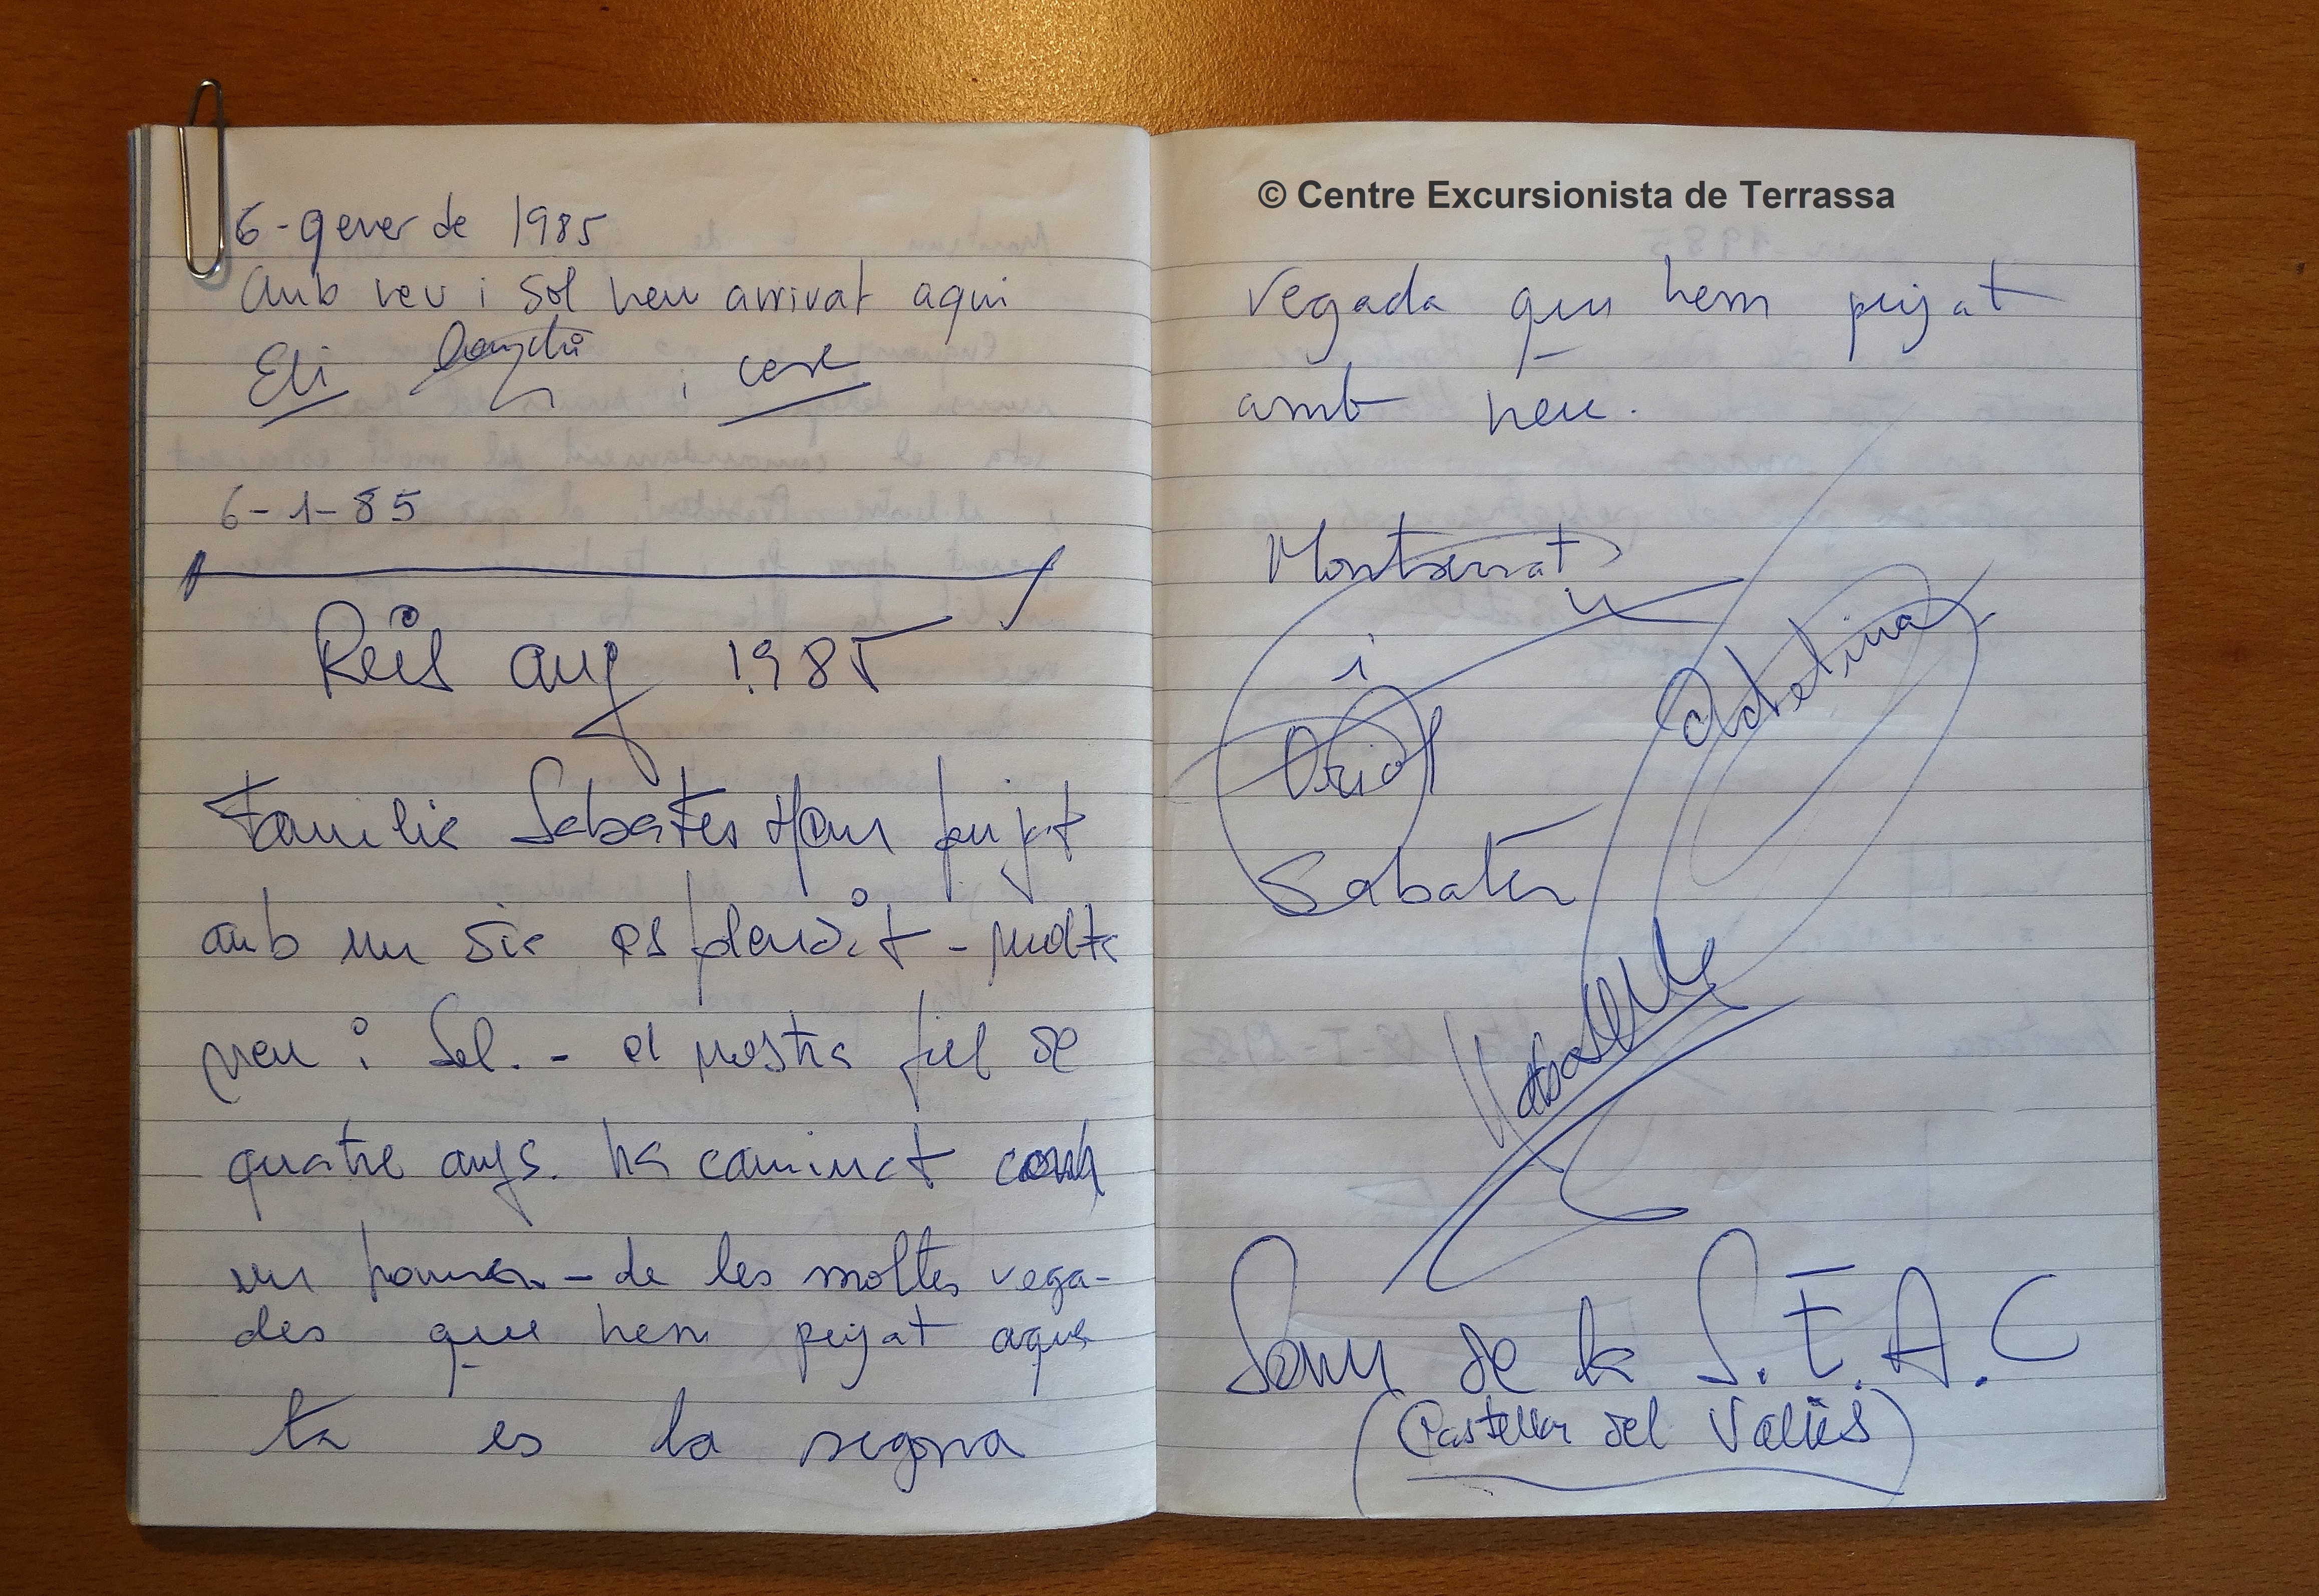 6-gener de 1985
Amb neu i sol hem arrivat aqui
Eli i
6-1-85
Reis any 1985
Familia Sabates Ham pujat
amb un dia esplendit - molta
neu i Sol. - el nostra fiel de
quatre anys. ha caminat com
un home - de les moltes vega-
des que hem pujat aques
ta es la segona
© Centre Excursionista de Terrassa
vegada que hem pujat
amb neu.
Montserrat
i
Oriol
Sabatés
Adelina
Som de la S.F.A.C
(Castellar del Vallés)